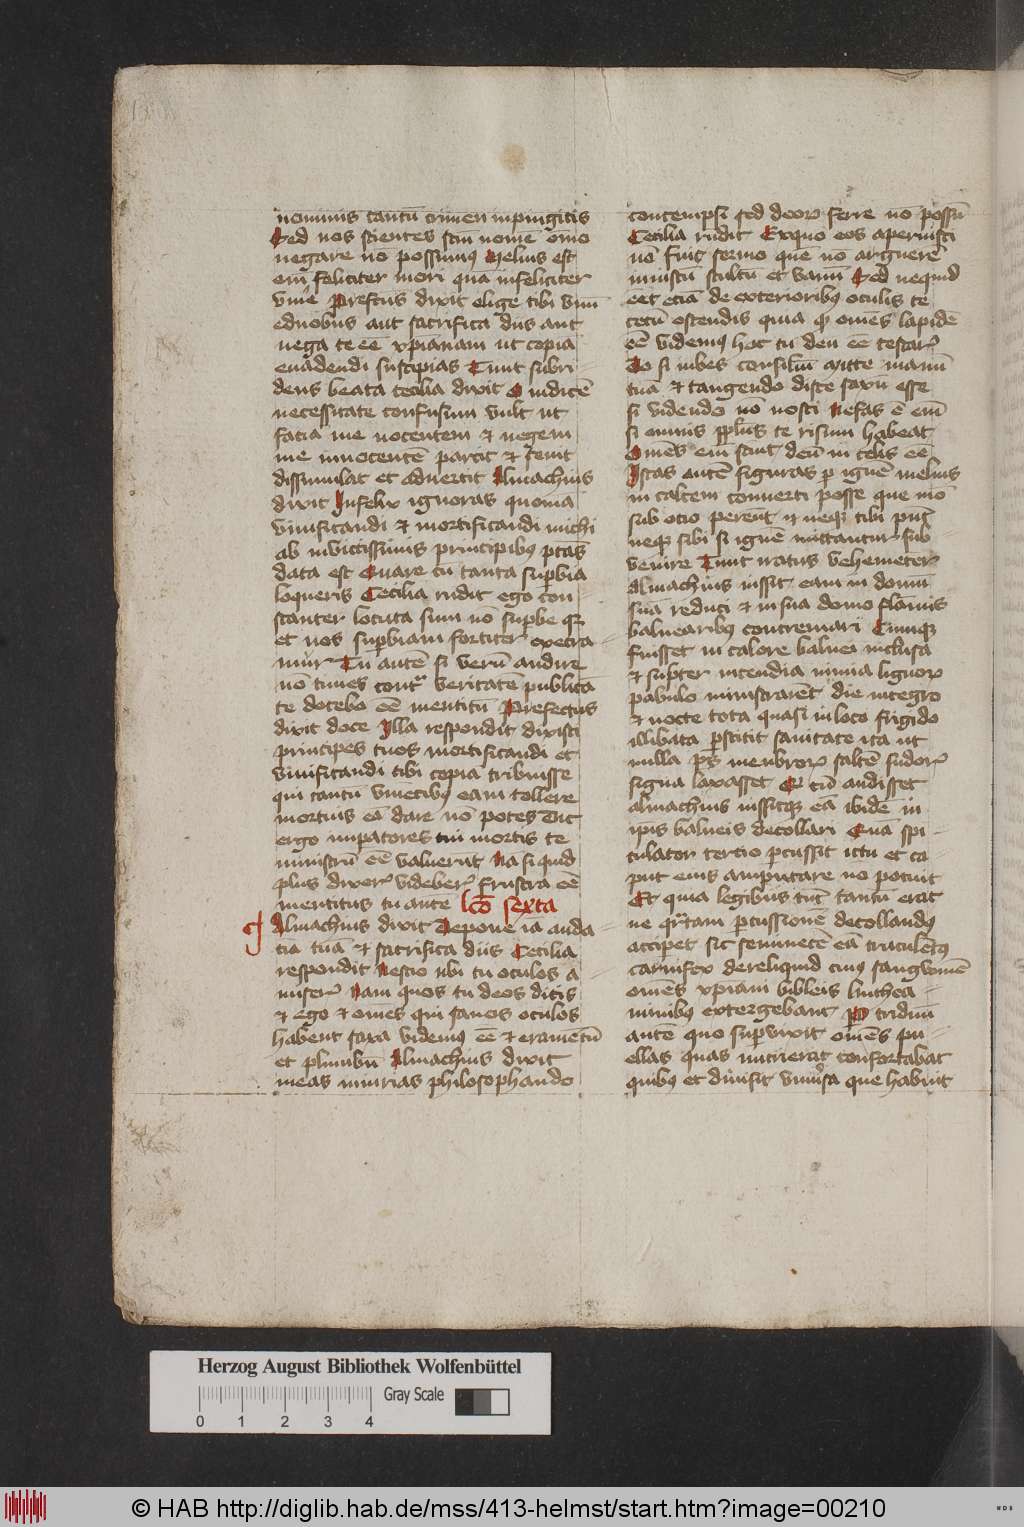 nominis tantū crimen inpingitis
Sed nos scientes scm̄ nomē om̄o
negare nō possumꝰ Melius est
em̄ feliciter mori quā infeliciter
viuē Prefectus dixit elige tibi vnū
eduobus aut sacrifica diis aut
nega te eē xpīanam ut copia
euadendi suscipias Tunc subri
dens beata cecilia dixit O iudicē
necessitate confusum vult ut
facia me nocentem et negem
me innocentē parcit et seuit
dissimulat et aduertit Almachius
dixit Infelix ignoras quonia
viuificandi et mortificandi michi
ab inuictissimis principibꝰ ptās
data est Quare cū tanta supbia
loqueris Cecilia rñdit ego con
stanter locuta sum nō supbe qꝛ
et nos supbiam fortiter execra
mur Tu autē si verū audire
nō times contᵃ veritatē publica
te docebo eē mentitū Prefectus
dixit doce Illa respondit dixisti
principes tuos mortificandi et
viuificandi tibi copia tribuisse
qui tantū viuētibꝰ eam tollere
mortuis eā dare nō potes Dic
ergo impatores tui mortis te
ministrū eē valuerūt Na si quid
plus dixerꝭ viđeberꝭ frustra eē
mentitus tu aute lco̅ sexta
Almachius dixit Depone ia auda
cia tuā et sacrifica diis Cecilia
respondit Nescio ubi tu oculos a
miserꝭ Nam quos tu deos dicis
et ego et om̄es qui sanos oculos
habent saxa videmꝰ eē et eramētū
et plumbū Almachius dixit
meas iniurias philosophando
contempsi sed deoꝝ ferre nō possū
Cecilia rñdit Exquo eos aperuisti
nō fuit sermo que nō arguerē
iniustū stultū et vanū Sed nequid
eēt etiā de exterioribꝰ oculis te
cecū ostendis quia qđ om̄es lapidē
eē videmꝰ hoc tu deū eē testarꝭ
Do si iubes consiliū Mitte manū
tuā et tangendo disce saxū esse
si videndo nō nosti Nefas ē em̄
si omnis pplus te risum habeat
Om̄es em̄ sciūt deū in celis eē
Istas autē figuras p ignē melius
in calcem conuerti posse que mō
sub ocio pereūt et neqꝫ tibi pn̄t
neqꝫ sibi si ignē mittantur sub
venire Tunc iratus vehemēterꝭ
Almachius iussit eam in domū
suā reduci et in sua domo flāmis
balnearibꝰ concremari Cumqꝫ
fuisset in calore balnei inclusa
et supter incendia nimia lignoꝝ
pabulo ministrarēt die integro
et nocte tota quasi in loco frigido
illibata pstitit sanitate ita ut
nulla ps̄ menbroꝝ saltē sudorꝭ
signa laxasset Qđ cū audisset
almachius iussitqꝫ eā ibidē in
ipīs balneis decollari Quā spi
culator tercio pcussit ictu et ca
put eius amputare nō potuit
Et quia legibus tūc tantū erat
ne qᵃrtam pcussionē decollandꝰ
acciperet sic seminecē eā truculētꝰ
carnifex dereliquid cuiꝰ sangwinē
om̄es xpīam bibleis lintheā
minibꝰ extergebant Per triduū
autē quo supuixit om̄es pu
ellas quas nutrierat confortabat
quibꝰ et diuisit vniūsa que habuit
Herzog August Bibliothek Wolfenbüttel
0 1 2 3 4
Gray Scale
© HAB http://diglib.hab.de/mss/413-helmst/start.htm?image=00210